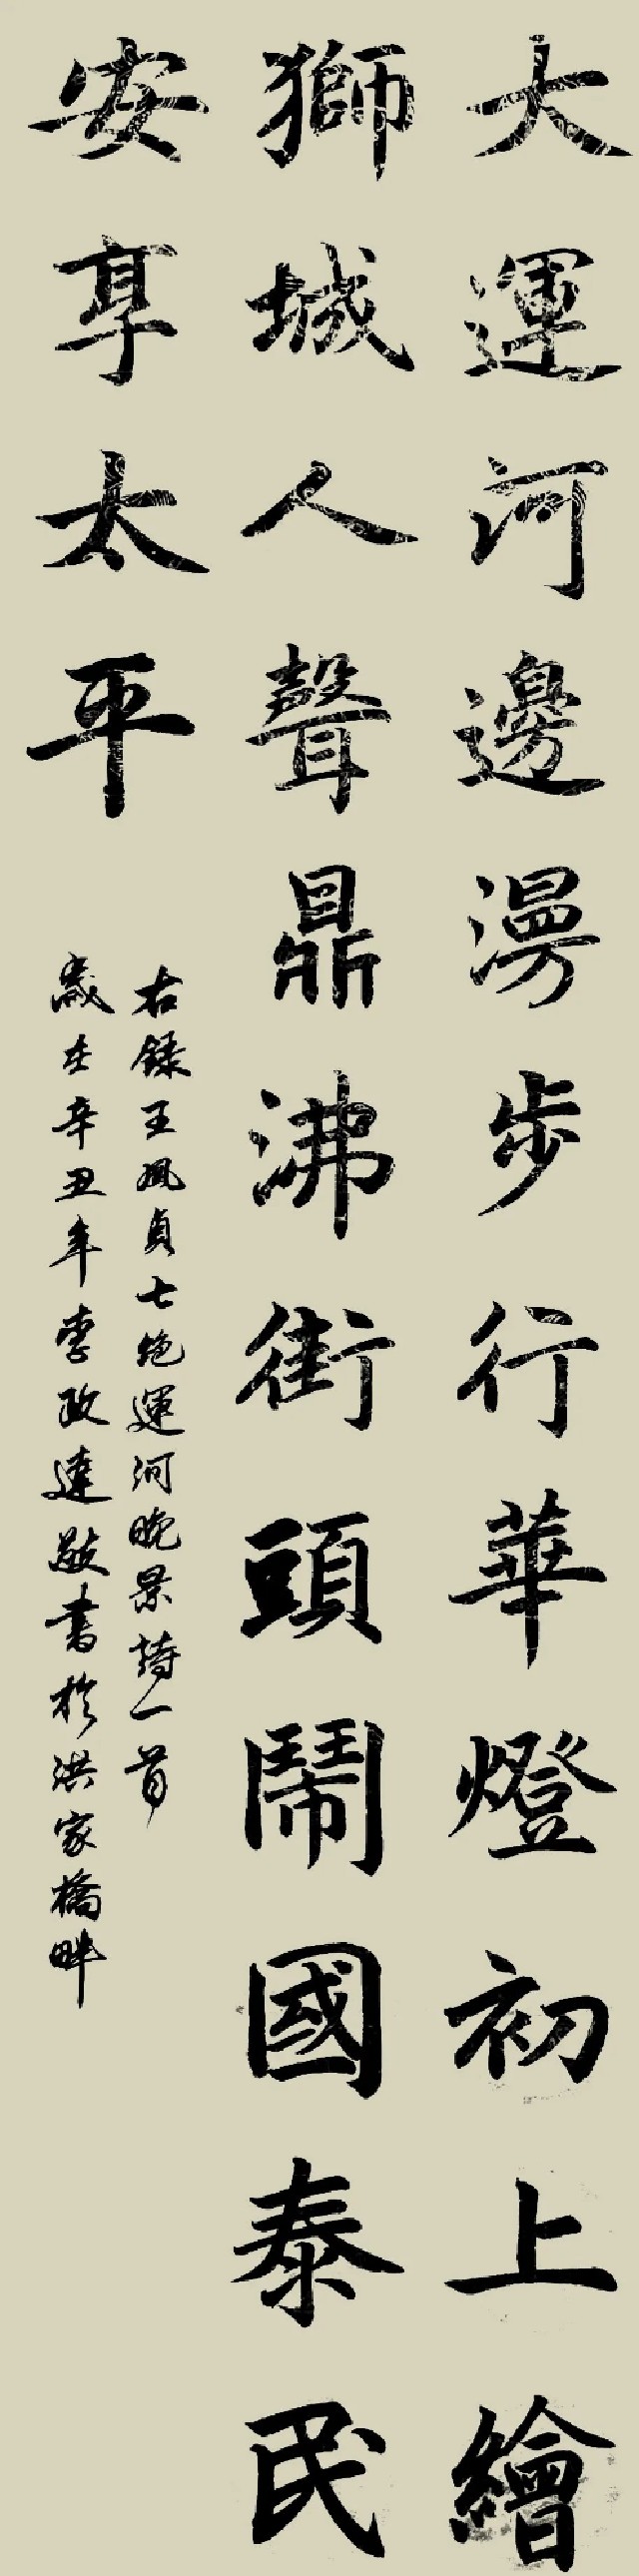 大運河邊漫步行華燈初上繪
獅城人聲鼎沸街頭鬧國泰民
安享太平
右録王鳳貞七絶運河晚景詩一首
歲在辛丑年李政達敬書於洪家橋畔